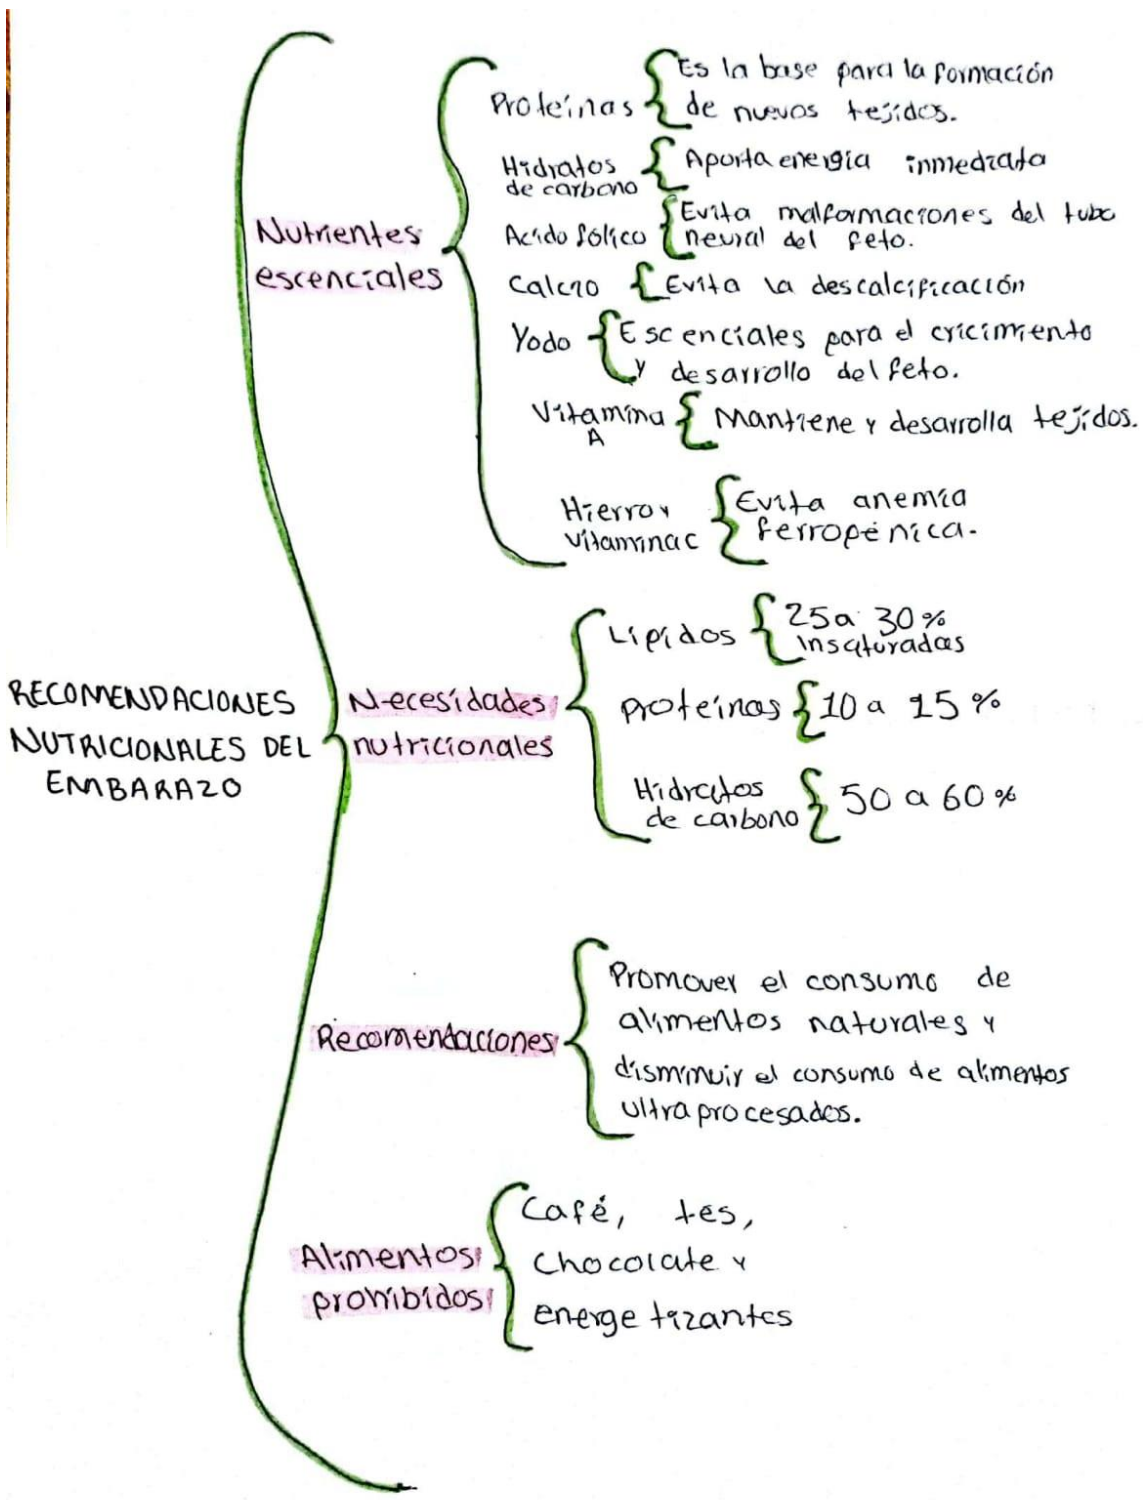 RECOMENDACIONES
NUTRICIONALES DEL
EMBARAZO
Nutrientes
escenciales
Proteínas
Es la base para la formación
de nuevos tejidos.
Hidratos
de carbono
Aporta energía inmediata
Acido fólico
Evita malformaciones del tubo
neural del feto.
Calcio
Evita la descalcificación
Yodo
Escenciales para el cricimiento
y desarrollo del feto.
Vitamina
A
Mantiene y desarrolla tejidos.
Hierro y
vitamina c
Evita anemia
ferropénica.
Necesidades
nutricionales
Lípidos
25 a 30%
Insaturadas
proteínas
10 a 15%
Hidratos
de carbono
50 a 60%
Recomendaciones
Promover el consumo de
alimentos naturales y
disminuir el consumo de alimentos
ultraprocesados.
Alimentos
prohibidos
Café, tes,
Chocolate y
energetizantes